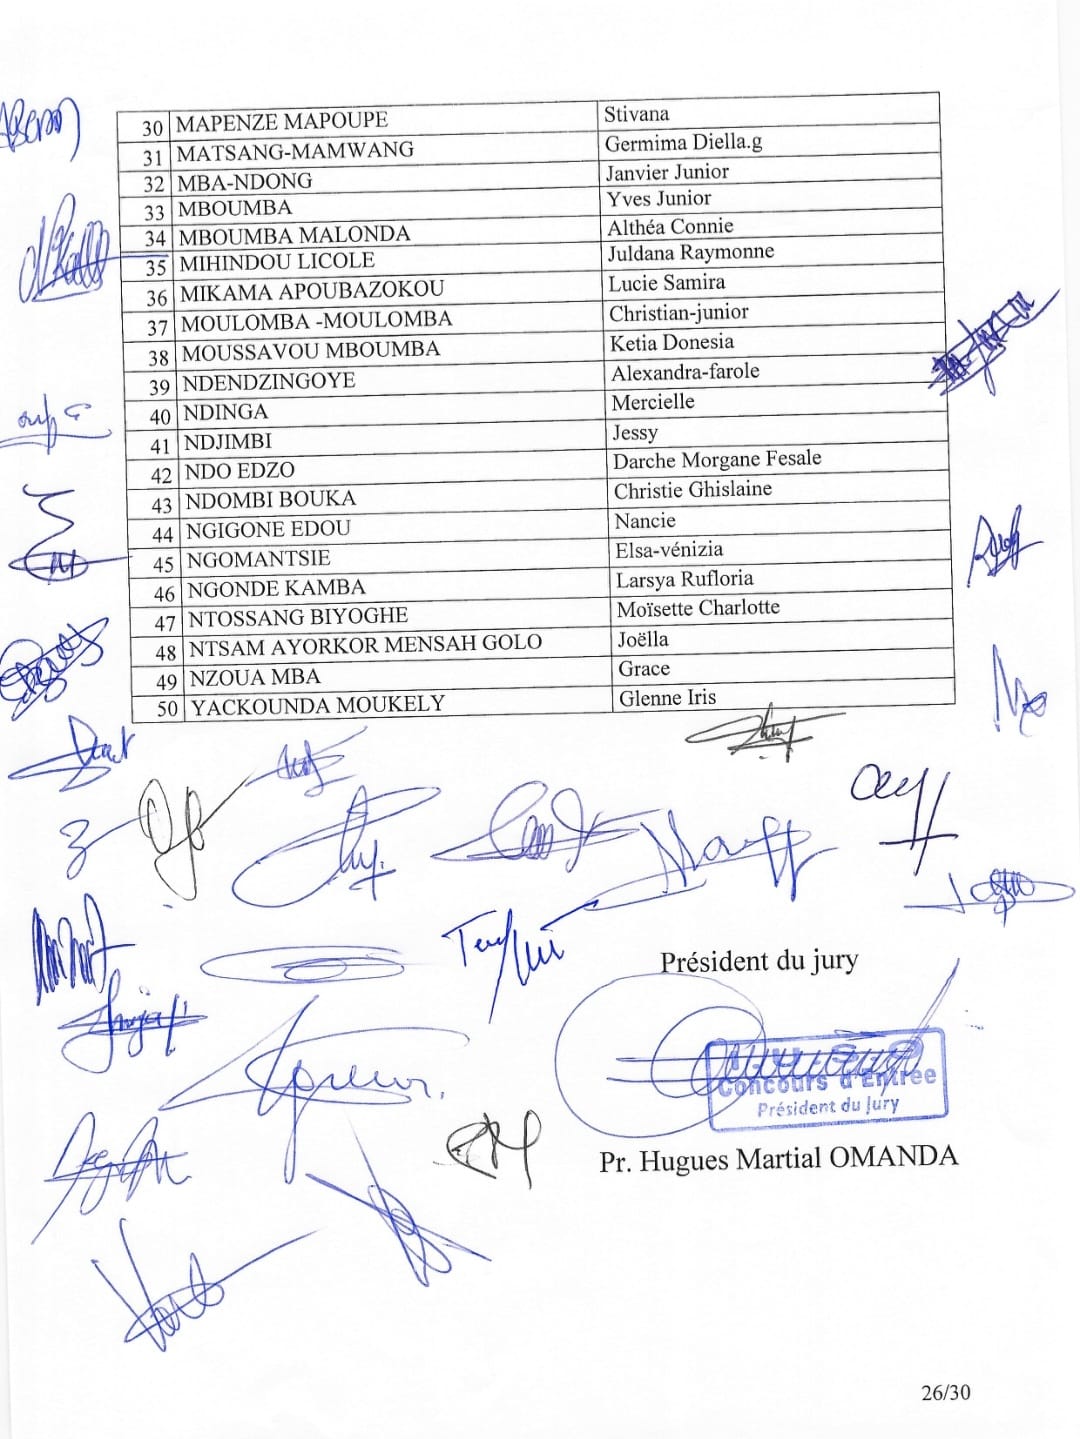 30 MAPENZE MAPOUPE Stivana
31 MATSANG-MAMWANG Germima Diella.g
32 MBA-NDONG Janvier Junior
33 MBOUMBA Yves Junior
34 MBOUMBA MALONDA Althéa Connie
35 MIHINDOU LICOLE Juldana Raymonne
36 MIKAMA APOUBAZOKOU Lucie Samira
37 MOULOMBA -MOULOMBA Christian-junior
38 MOUSSAVOU MBOUMBA Ketia Donesia
39 NDENDZINGOYE Alexandra-farole
40 NDINGA Mercielle
41 NDJIMBI Jessy
42 NDO EDZO Darche Morgane Fesale
43 NDOMBI BOUKA Christie Ghislaine
44 NGIGONE EDOU Nancie
45 NGOMANTSIE Elsa-vénizia
46 NGONDE KAMBA Larsya Rufloria
47 NTOSSANG BIYOGHE Moïsette Charlotte
48 NTSAM AYORKOR MENSAH GOLO Joëlla
49 NZOUA MBA Grace
50 YACKOUNDA MOUKELY Glenne Iris
Président du jury
Concours d'Entrée
Président du Jury
Pr. Hugues Martial OMANDA
26/30